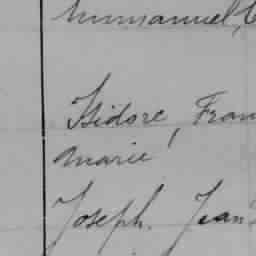 Emmanuel, C
Isidore, Fran
Marie
Joseph. Jean